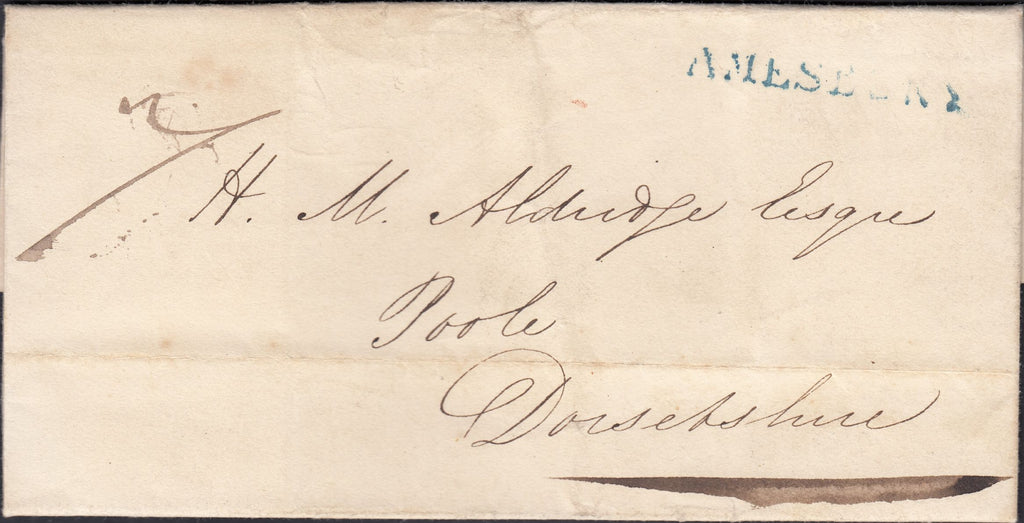 AMESBURY
H. M. Aldridge Esqre
Poole
Dorsetshire